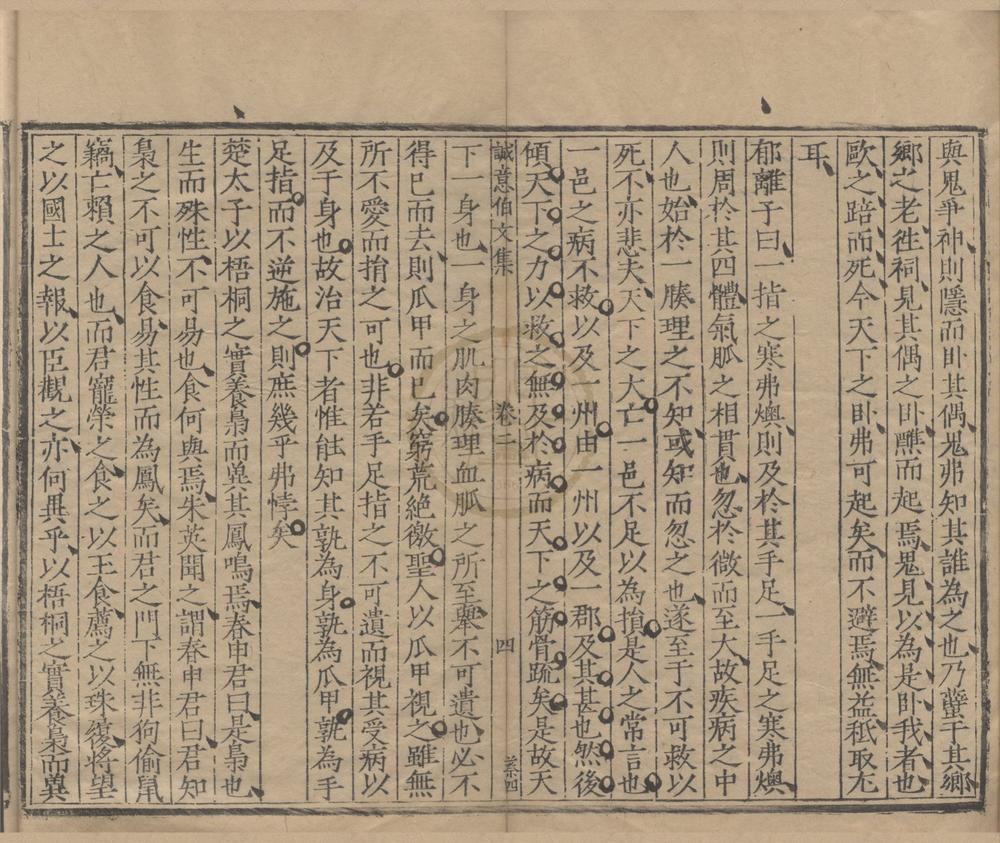 與鬼爭神則隱而卧其偶鬼弗知其誰為之也乃蠥于其鄉
鄉之老徃祠見其偶之卧醮而起焉鬼見以為是卧我者也
歐之踣而死今天下之卧弗可起矣而不避焉無益秪取尤
耳
郁離子曰一指之寒弗燠則及於其手足一手足之寒弗燠
則周於其四體氣脈之相貫也忽於微而至大故疾病之中
人也始於一腠理之不知或知而忽之也遂至于不可救以
死不亦悲夫天下之大亡一邑不足以為損是人之常言也
一邑之病不救以及一州由一州以及一郡及其甚也然後
傾天下之力以救之無及於病而天下之筋骨䟽矣是故天
誠意伯文集 卷二 四
下一身也一身之肌肉腠理血脈之所至舉不可遺也必不
得已而去則瓜甲而已矣窮荒絶徼聖人以瓜甲視之雖無
所不愛而捐之可也非若手足指之不可遺而視其受病以
及于身也故治天下者惟能知其孰為身孰為瓜甲孰為手
足指而不逆施之則庶幾乎弗悖矣
楚太子以梧桐之實養梟而兾其鳳鳴焉春申君曰是梟也
生而殊性不可易也食何與焉朱英聞之謂春申君曰君知
梟之不可以食易其性而為鳳矣而君之門下無非狗偷鼠
竊亡賴之人也而君寵榮之食之以玉食薦之以珠履將望
之以國士之報以臣觀之亦何異乎以梧桐之實養梟而兾